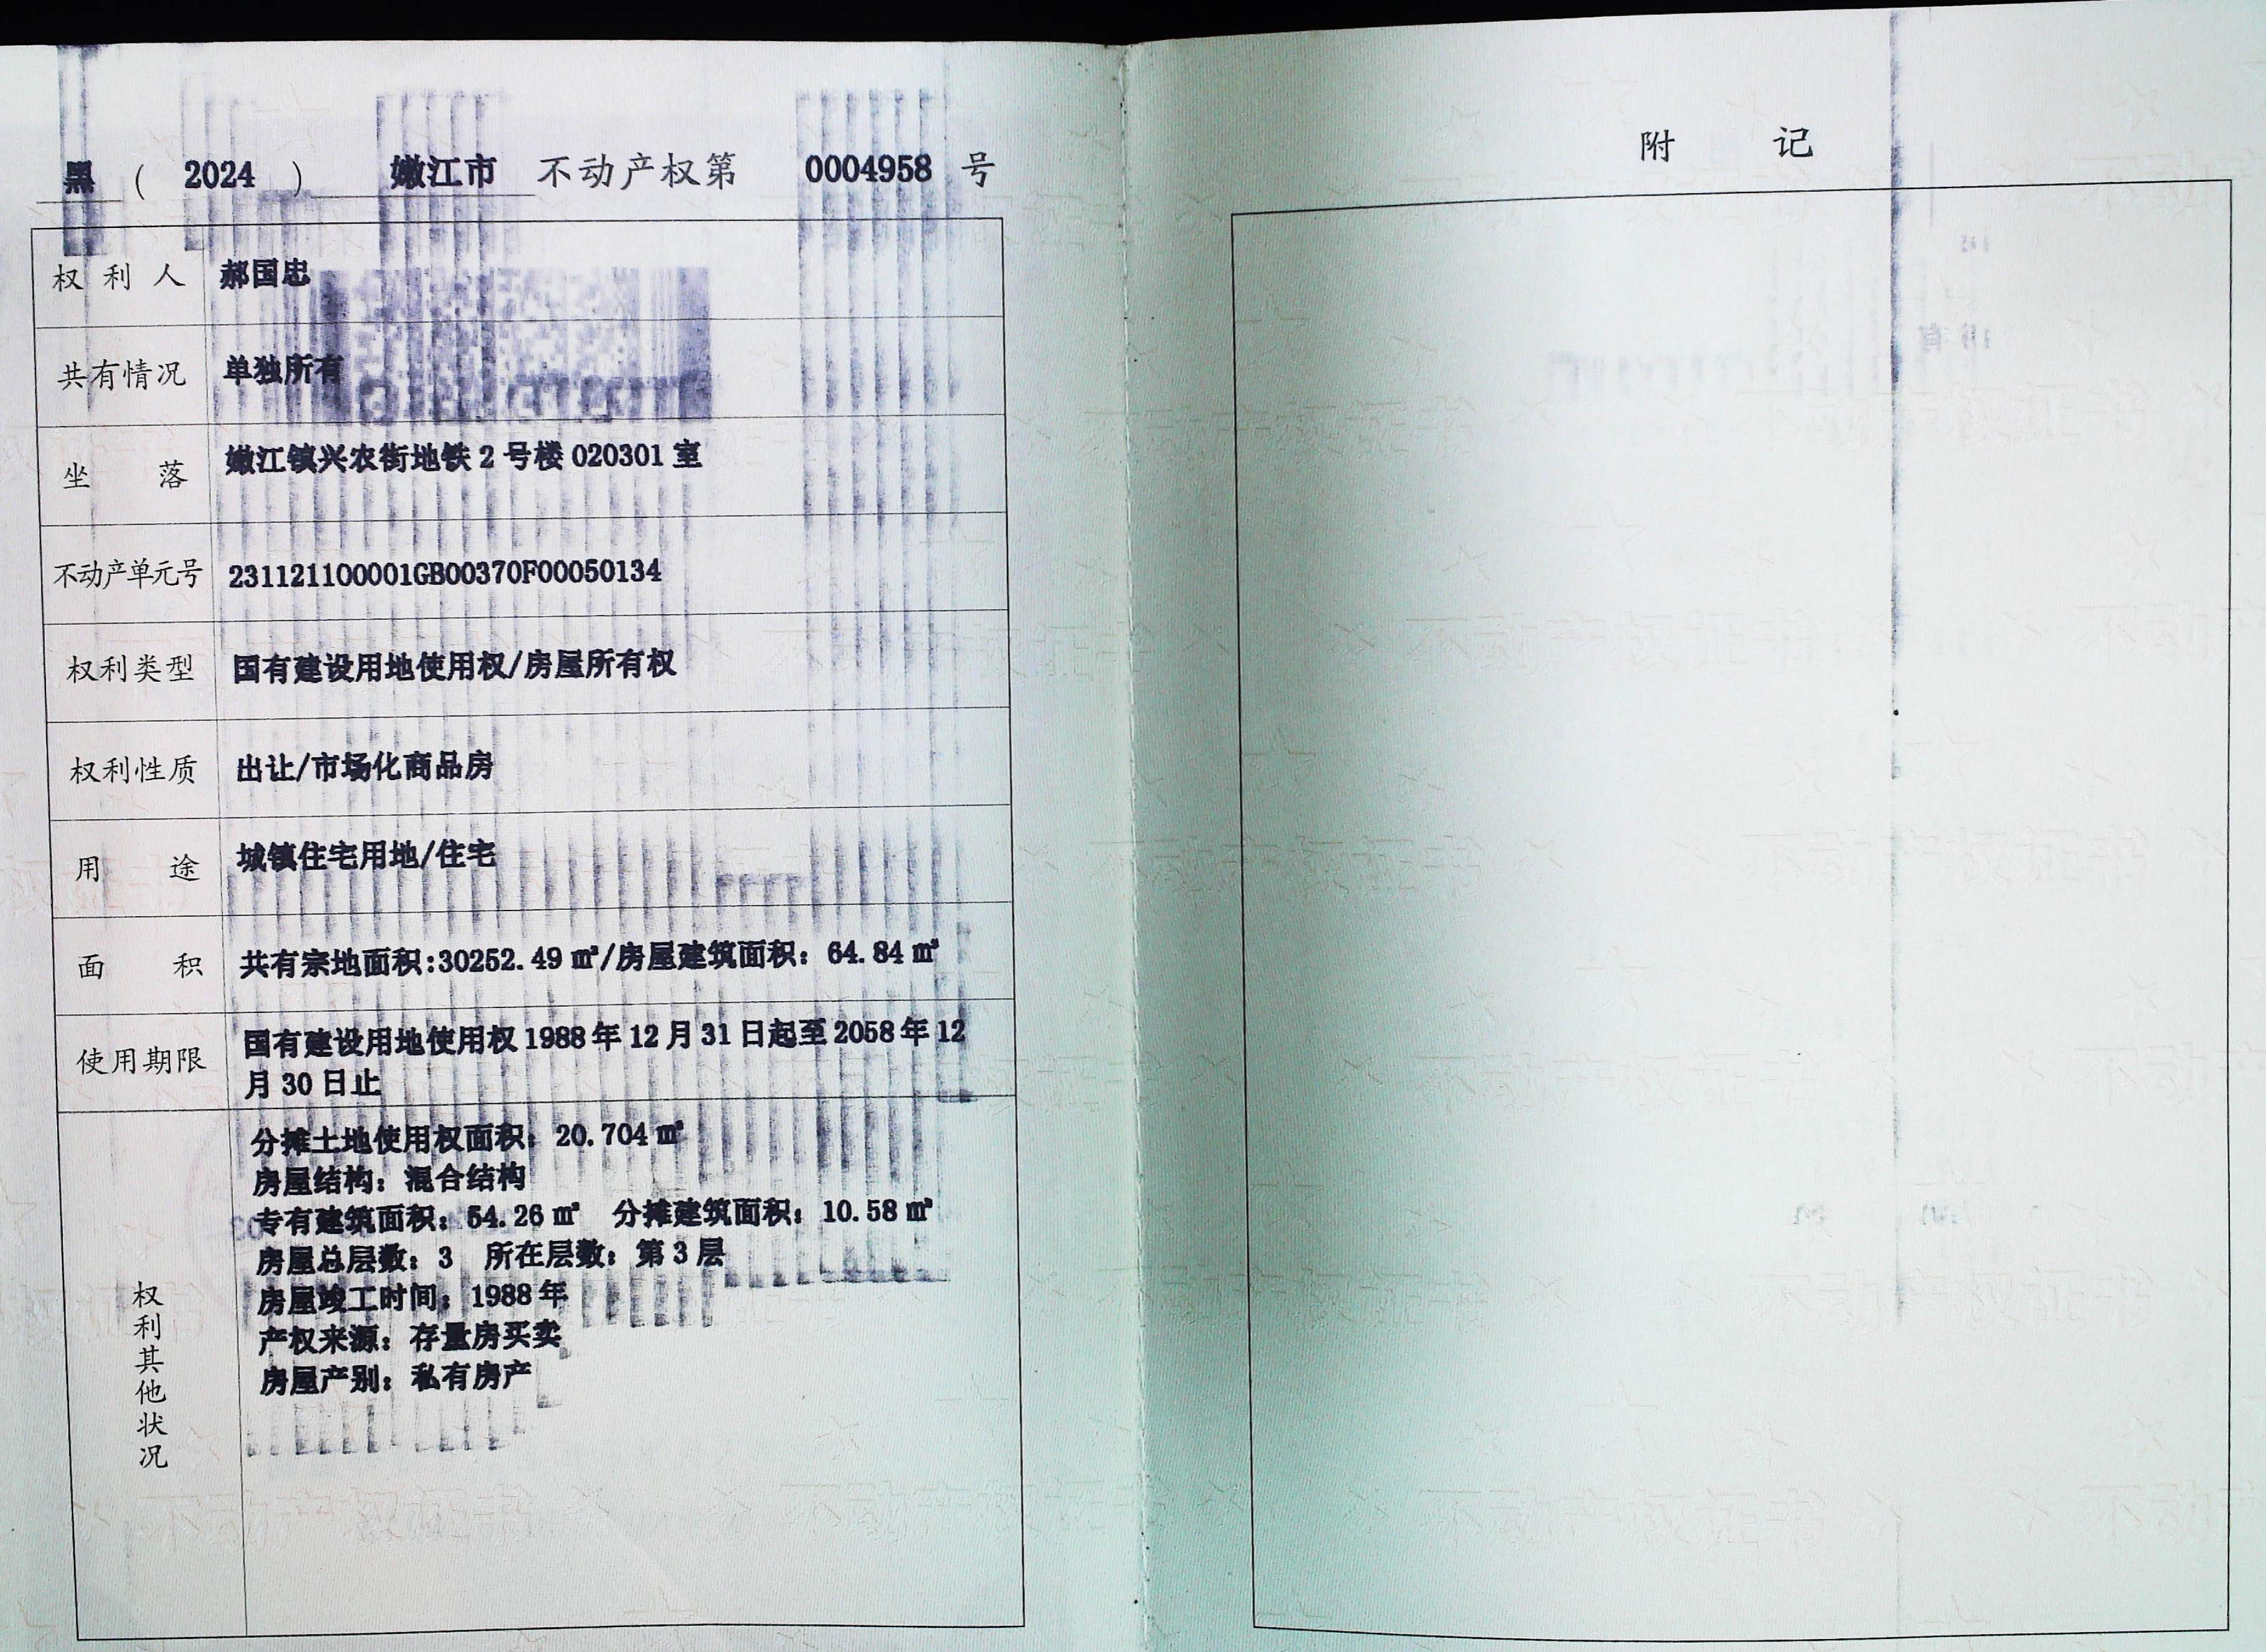 黑 ( 2024 ) 嫩江市 不动产权第 0004958 号
权利人 郝国忠
共有情况 单独所有
坐落 嫩江镇兴农街地铁 2 号楼 020301 室
不动产单元号 231121100001GB00370F00050134
权利类型 国有建设用地使用权/房屋所有权
权利性质 出让/市场化商品房
用途 城镇住宅用地/住宅
面积 共有宗地面积:30252.49 ㎡/房屋建筑面积：64.84 ㎡
使用期限 国有建设用地使用权 1988 年 12 月 31 日起至 2058 年 12
月 30 日止
权利其他状况
分摊土地使用权面积：20.704 ㎡
房屋结构：混合结构
专有建筑面积：54.26 ㎡ 分摊建筑面积：10.58 ㎡
房屋总层数：3 所在层数：第 3 层
房屋竣工时间：1988 年
产权来源：存量房买卖
房屋产别：私有房产
附记